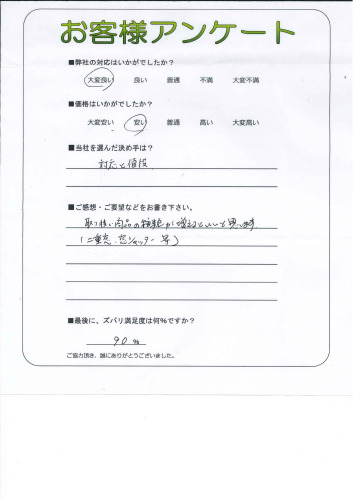 お客様アンケート
■弊社の対応はいかがでしたか?
大変良い 良い 普通 不満 大変不満
■価格はいかがでしたか?
大変安い 安い 普通 高い 大変高い
■当社を選んだ決め手は?
対応と値段
■ご感想・ご要望などをお書き下さい。
取り扱い商品の種類が増えるといいと思います
(二重窓、窓シャッター等)
■最後に、ズバリ満足度は何%ですか?
90 %
ご協力頂き、誠にありがとうございました。